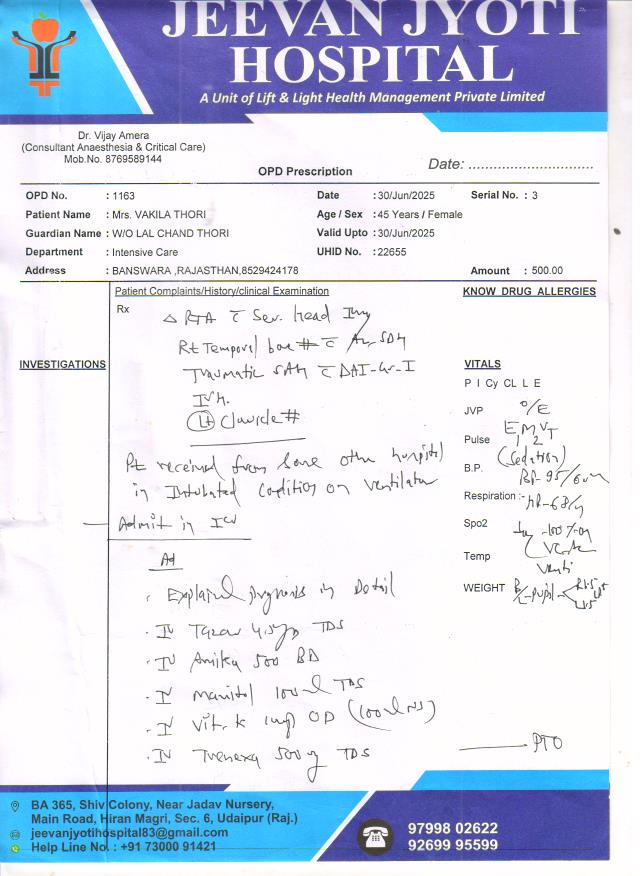 JEEVAN JYOTI
HOSPITAL
A Unit of Lift & Light Health Management Private Limited
Dr. Vijay Amera
(Consultant Anaesthesia & Critical Care)
Mob.No. 8769589144
Date: ..............................
OPD Prescription
OPD No. : 1163 Date : 30/Jun/2025 Serial No. : 3
Patient Name : Mrs. VAKILA THORI Age / Sex : 45 Years / Female
Guardian Name : W/O LAL CHAND THORI Valid Upto : 30/Jun/2025
Department : Intensive Care UHID No. : 22655
Address : BANSWARA ,RAJASTHAN,8529424178 Amount : 500.00
Patient Complaints/History/clinical Examination
Rx
△ RTA c̄ Sev. head Inj
Rt Temporal bone # c̄ SDH
Traumatic SAH c̄ DAI-Gr-I
IVH.
(Lt) Clavicle #
Pt received from Some other hospital
in Intubated condition on ventilator
Admit in ICU
Ad
. Explained prognosis in Detail
. IV Tazar 4.5gm TDS
. IV Amika 500 BD
. IV Manitol 100ml TDS
. IV Vit-k 1mg OD (100ml NS)
. IV Trenexa 500mg TDS
PTO
INVESTIGATIONS
KNOW DRUG ALLERGIES
VITALS
P I Cy CL L E
O/E
JVP
E M V T
Pulse 1 2
(Sedation)
B.P. BP-95/60
Respiration :- HR-68/
Spo2 -100% on
Temp
WEIGHT B/L-pupil
BA 365, Shiv Colony, Near Jadav Nursery,
Main Road, Hiran Magri, Sec. 6, Udaipur (Raj.)
jeevanjyotihospital83@gmail.com
Help Line No. : +91 73000 91421
97998 02622
92699 95599